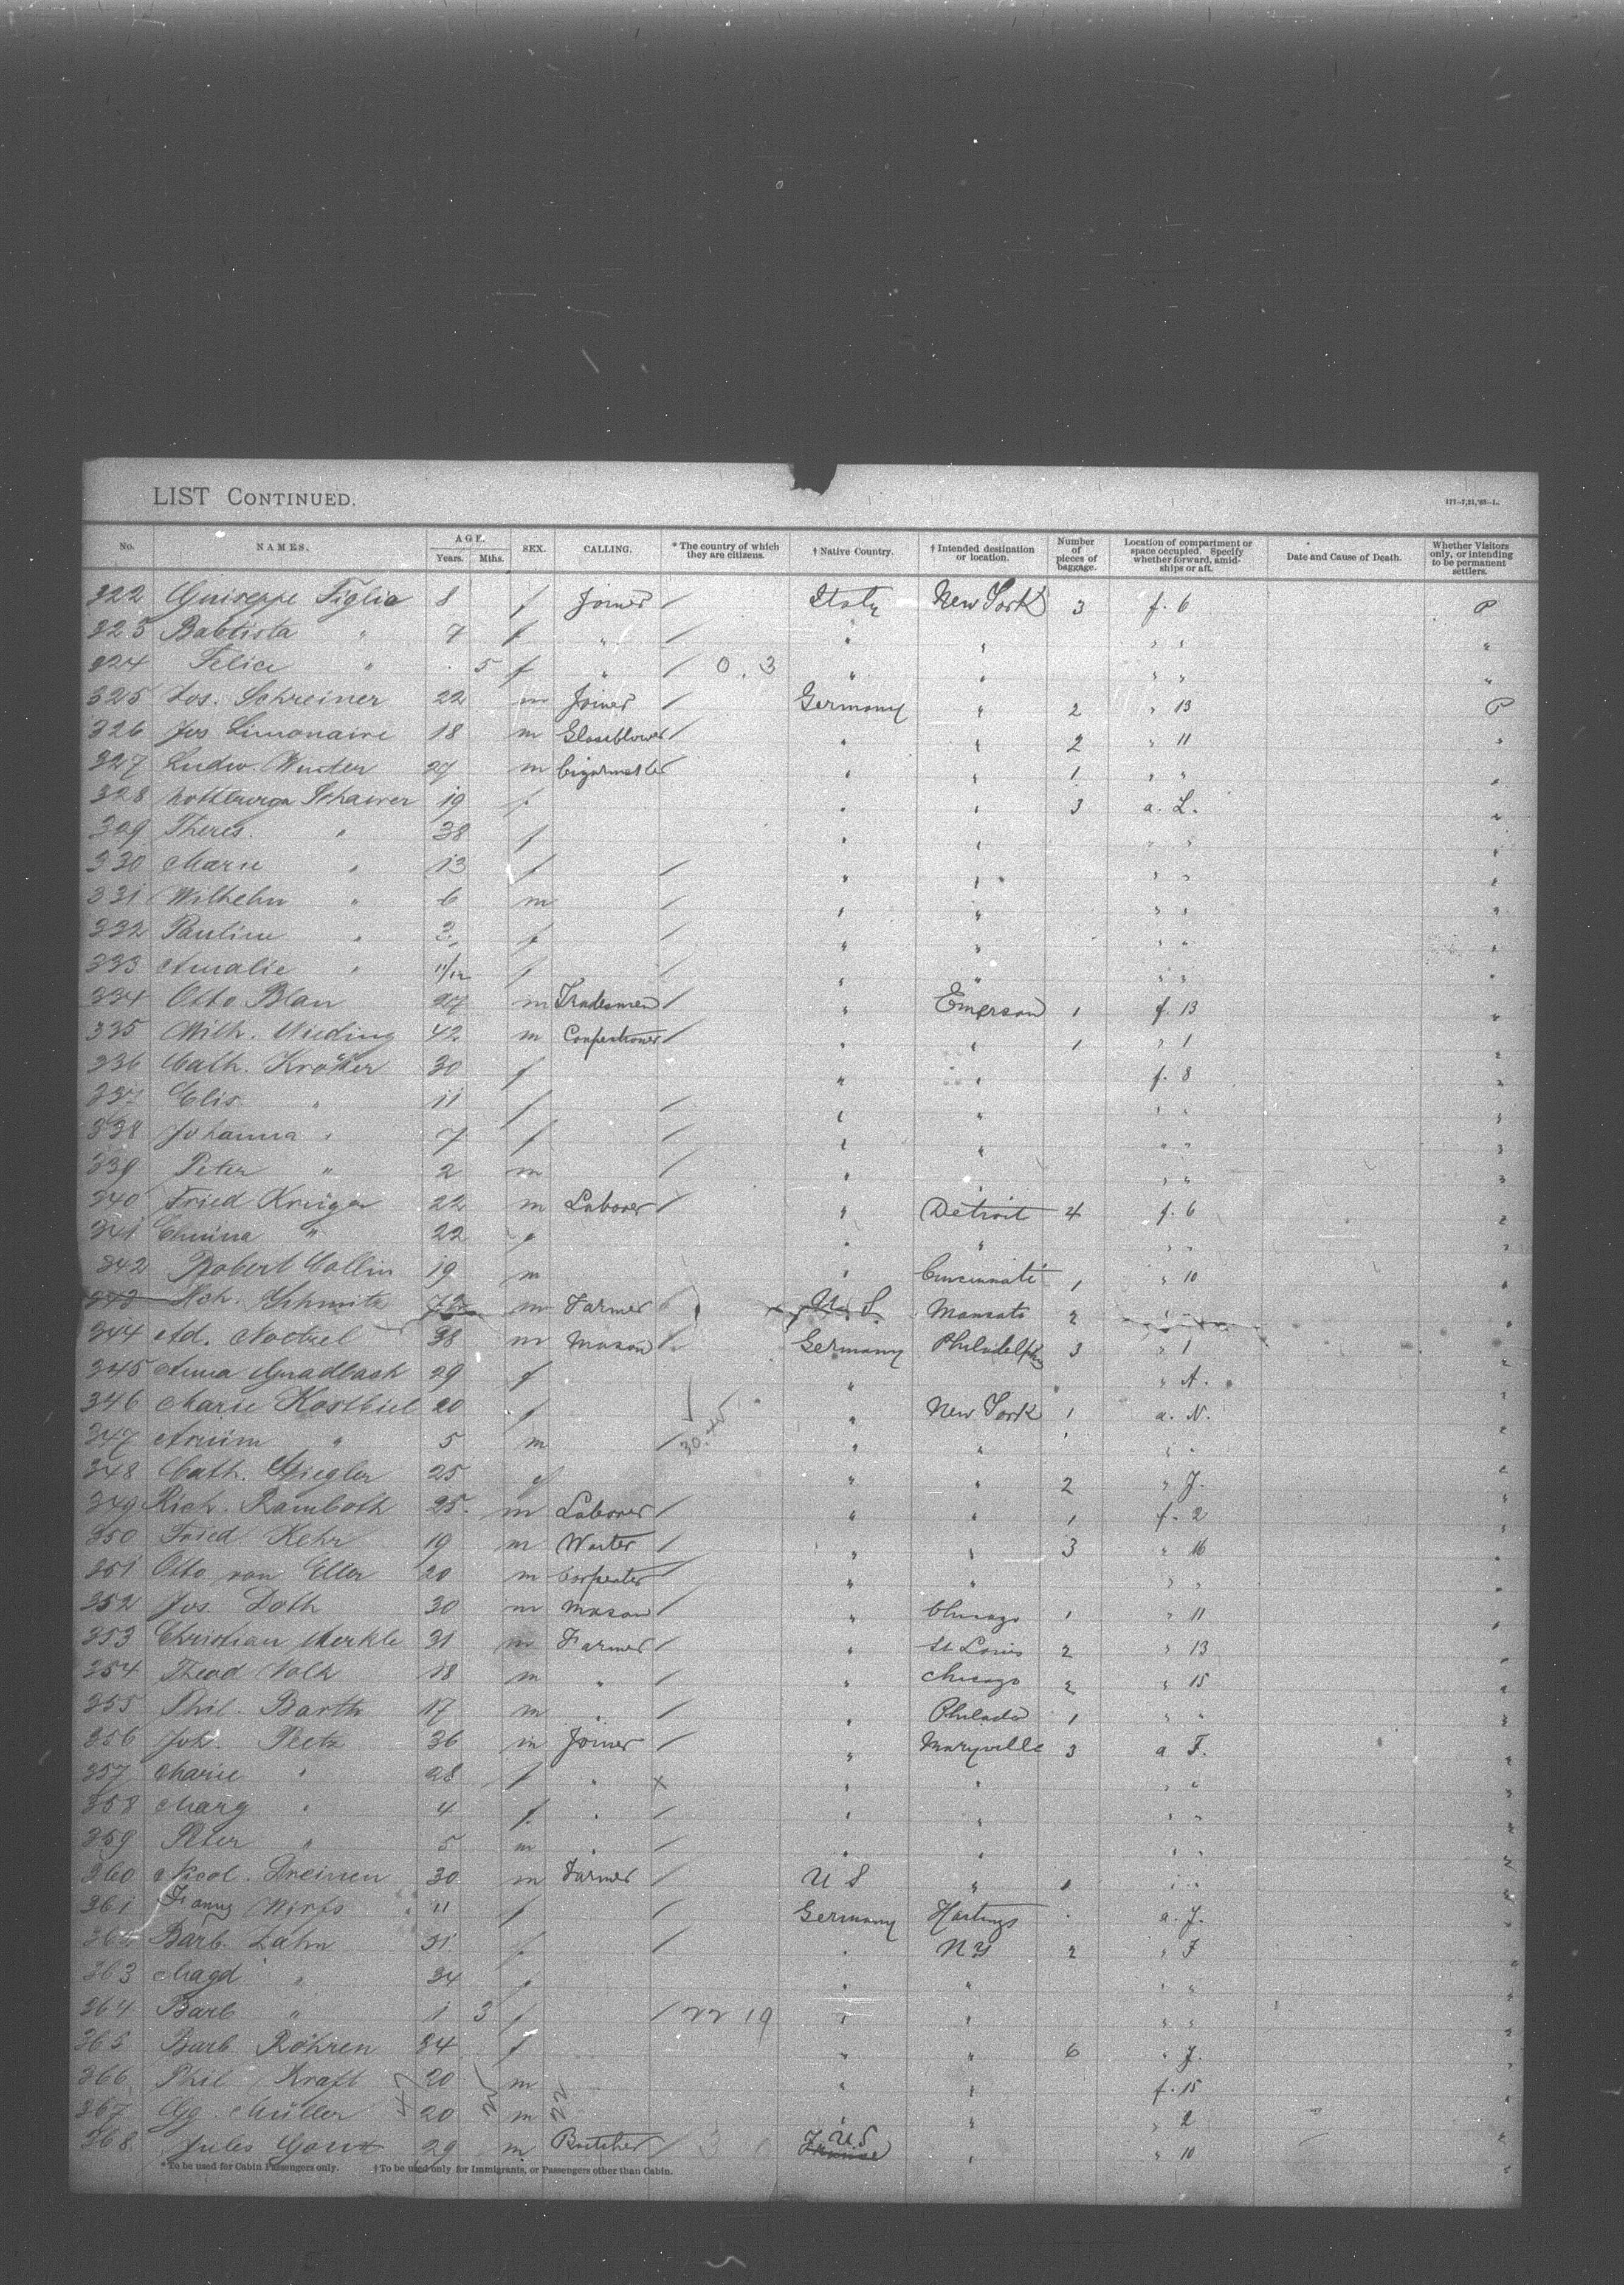 LIST CONTINUED.
177-7,21,'93-L.
No. NAMES. AGE. Years. Mths. SEX. CALLING. * The country of which they are citizens. † Native Country. † Intended destination or location. Number of pieces of baggage. Location of compartment or space occupied. Specify whether forward, amidships or aft. Date and Cause of Death. Whether Visitors only, or intending to be permanent settlers.
322 Guiseppe Figlia 8 f Joiner / Italy New York 3 f. 6 P
323 Babtista " 7 f " / " " " " "
324 Felice " 5 f " / 0.3 " " " " "
325 Jos. Schreiner 22 m Joiner / Germany " 2 " 13 P
326 Jos Limonaire 18 m Glassblower / " " 2 " 11 "
327 Ludw. 27 m / " " 1 " " "
328 19 f " " 3 a. L. "
329 Theres. " 38 f " " " " "
330 Marie " 13 f / " " " " "
331 Wilhelm " 6 m / " " " " "
332 Pauline " 3 f / " " " " "
333 Amalie " 11/12 f / " " " " "
334 Otto Blau 27 m Tradesman / " Emerson 1 f. 13 "
335 Wilh. 42 m / " " 1 " 1 "
336 Cath. 30 f " " f. 8 "
337 Elis " 11 f / " " " " "
338 Johanna " 7 f / " " " " "
339 Peter " 2 m / " " " " "
340 Fried Krüger 22 m Laborer / " Detroit 4 f. 6 "
341 Emma " 22 f " " " " "
342 Robert Collin 19 m " Cincinnati 1 " 10 "
343 Schmitz 72 m Farmer U. S. 2 "
344 Ad. 38 m Mason / Germany Philadelphia 3 " 1 "
345 Anna Gnadbach 29 f " " " A. "
346 Marie 20 f " New York 1 a. N. "
347 Armin " 5 m / 30. " " " " "
348 Cath. Stiegler 25 f " " 2 " J. "
349 Rich. Ramboth 25 m Laborer / " " 1 f. 2 "
350 Fried Kehr 19 m / " " 3 " 16 "
351 Otto von Eller 20 m / " " " " "
352 Jos. Doth 30 m Mason / " Chicago 1 " 11 "
353 Christian Merkle 31 m Farmer / " St Louis 2 " 13 "
354 Theod Volk 18 m " / " Chicago 2 " 15 "
355 Phil. Barth 17 m " / " Philada 1 " " "
356 Joh. Peetz 36 m Joiner / " Maryville 3 a F. "
357 Marie " 28 f " x " " " " "
358 Marg " 4 f. " / " " " " "
359 Peter " 5 m " / " " " " "
360 Nicol. Dreinen 30 m Farmer / U S " " " "
361 Fanny Wirfs 11 f / Germany Hastings a. J. "
362 Barb. Zahn 31 f / " N Y 2 " F "
363 Magd " 34 f " " " " "
364 Barb " 1 3 f / 22 19 " " " " "
365 Barb Röhren 34 f " " 6 " J. "
366 Phil Kraft 20 m " " f. 15 "
367 Gg. Müller 20 m " " " 2 "
368 Jules 29 m Butcher / 3 France U S " " 10 "
* To be used for Cabin Passengers only. † To be used only for Immigrants, or Passengers other than Cabin.